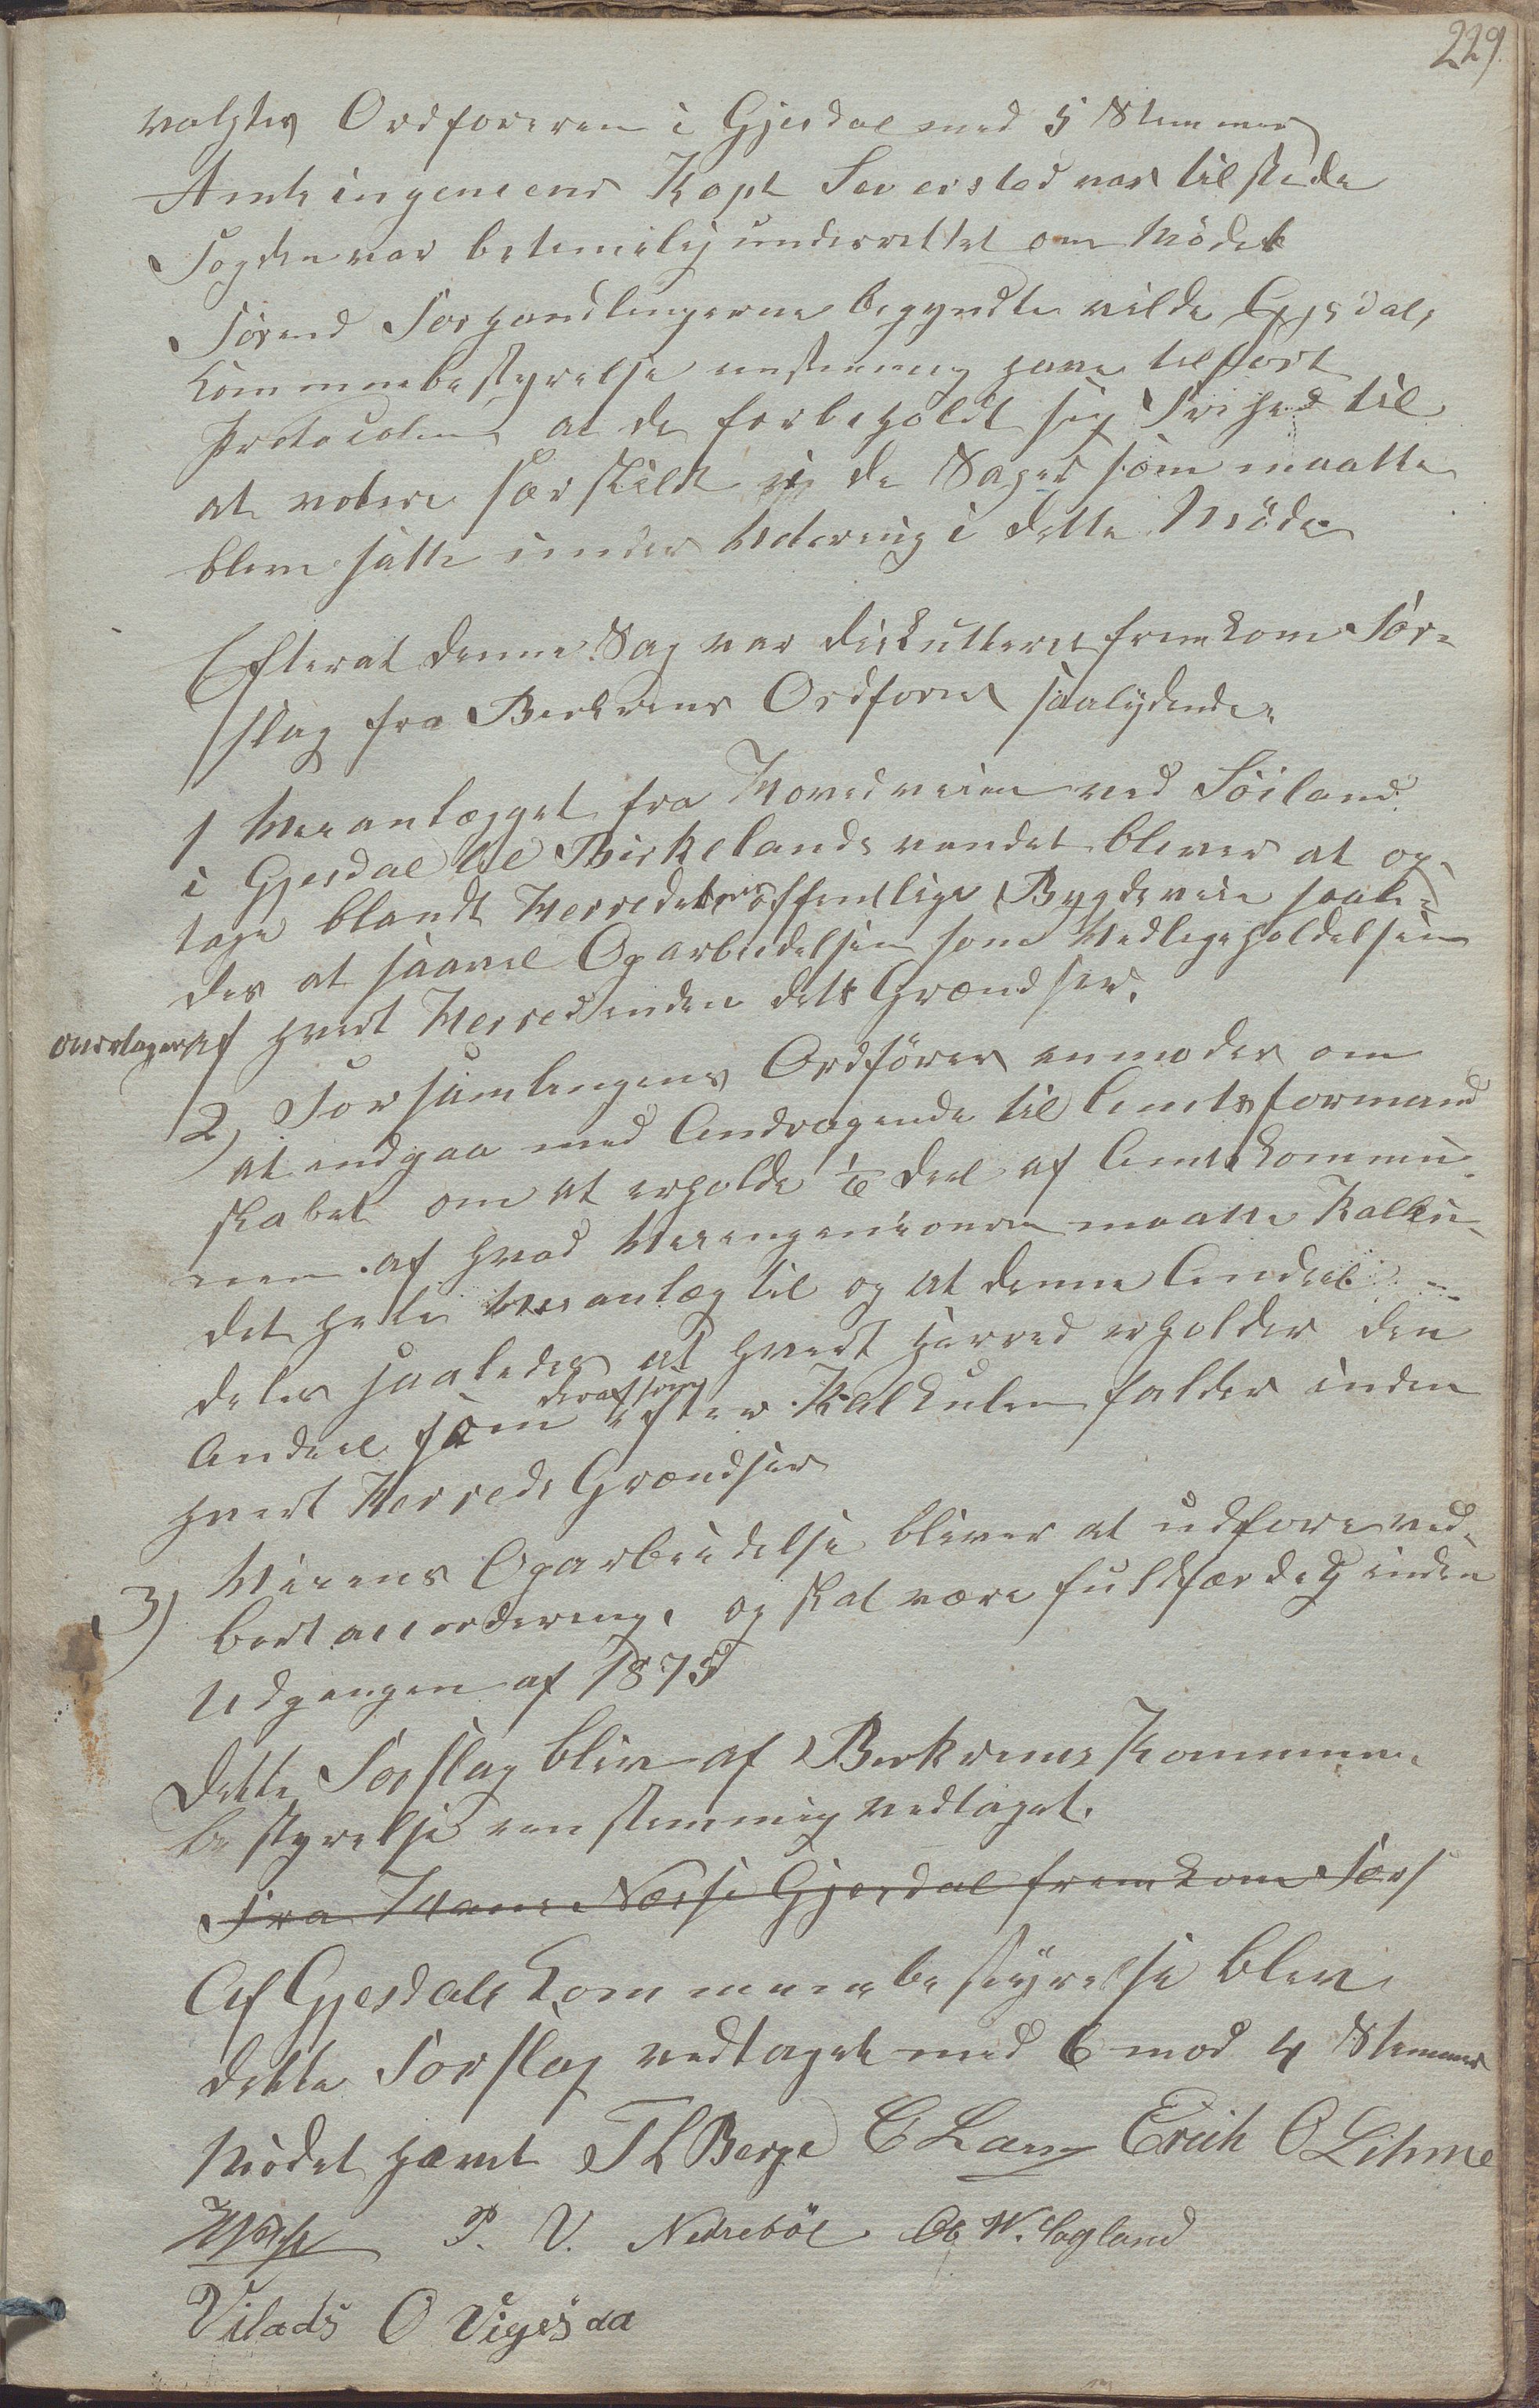 229
valgtes Ordføreren i Gjesdal med 5 Stemmer
Amtsingenieur Kapt Seversted var tilstede
Fogden var betimelig underrettet om Mödet
Förend Forhandlingerne begyndte vilde Gjesdals
Kommunebestyrelse enstemmig have tilført
Protocolen at de forbeholdt sig Frihed til
at votere særskildt i de Sager som maatte
blive satte under Votering i dette Möde
Efterat denne Sag var diskutteret fremkom For-
slag fra Birkrems Ordfører saalydende
1 Veianlægget fra Hovedveien ved Söiland
i Gjesdal til Birkelandsvandet bliver at op-
tage blandt Herredernes offentlige Bygdeveie saale-
des at saavel Oparbeidelsen som Vedligeholdelsen
overtages af hvert Herred inden dets Grændser.
2, Forsamlingens Ordförer anmodes om
at indgaa med Andragende til Amtsformand
skabet om at erholde 1/6 Deel af Amtskommu-
nen af hvad Veiingenieuren maatte Kalku-
det hele Veianlæg til og at denne Andeel
deles saaledes at hvert Herred erholder den
Andeel som deraf som efter Kalkulen falder inden
hvert Herreds Grændser
3) Veiens Oparbeidelse bliver at udføre ved
bortaccordering, og skal være fuldfærdig inden
Udgangen af 1875
Dette Forslag blev af Birkrems Kommune-
bestyrelse eenstemmig vedtaget.
Fra Hans Næsse Gjesdal fremkom Fors
Af Gjesdals Kommunebestyrelse blev
dette Forslag vedtaget med 6 mod 4 Stemmer
Mödet hævet T L Berge C Lary Erich O Lihme
P. V. Nedrebö Ol W. Sagland
Vilads O Vigesdal